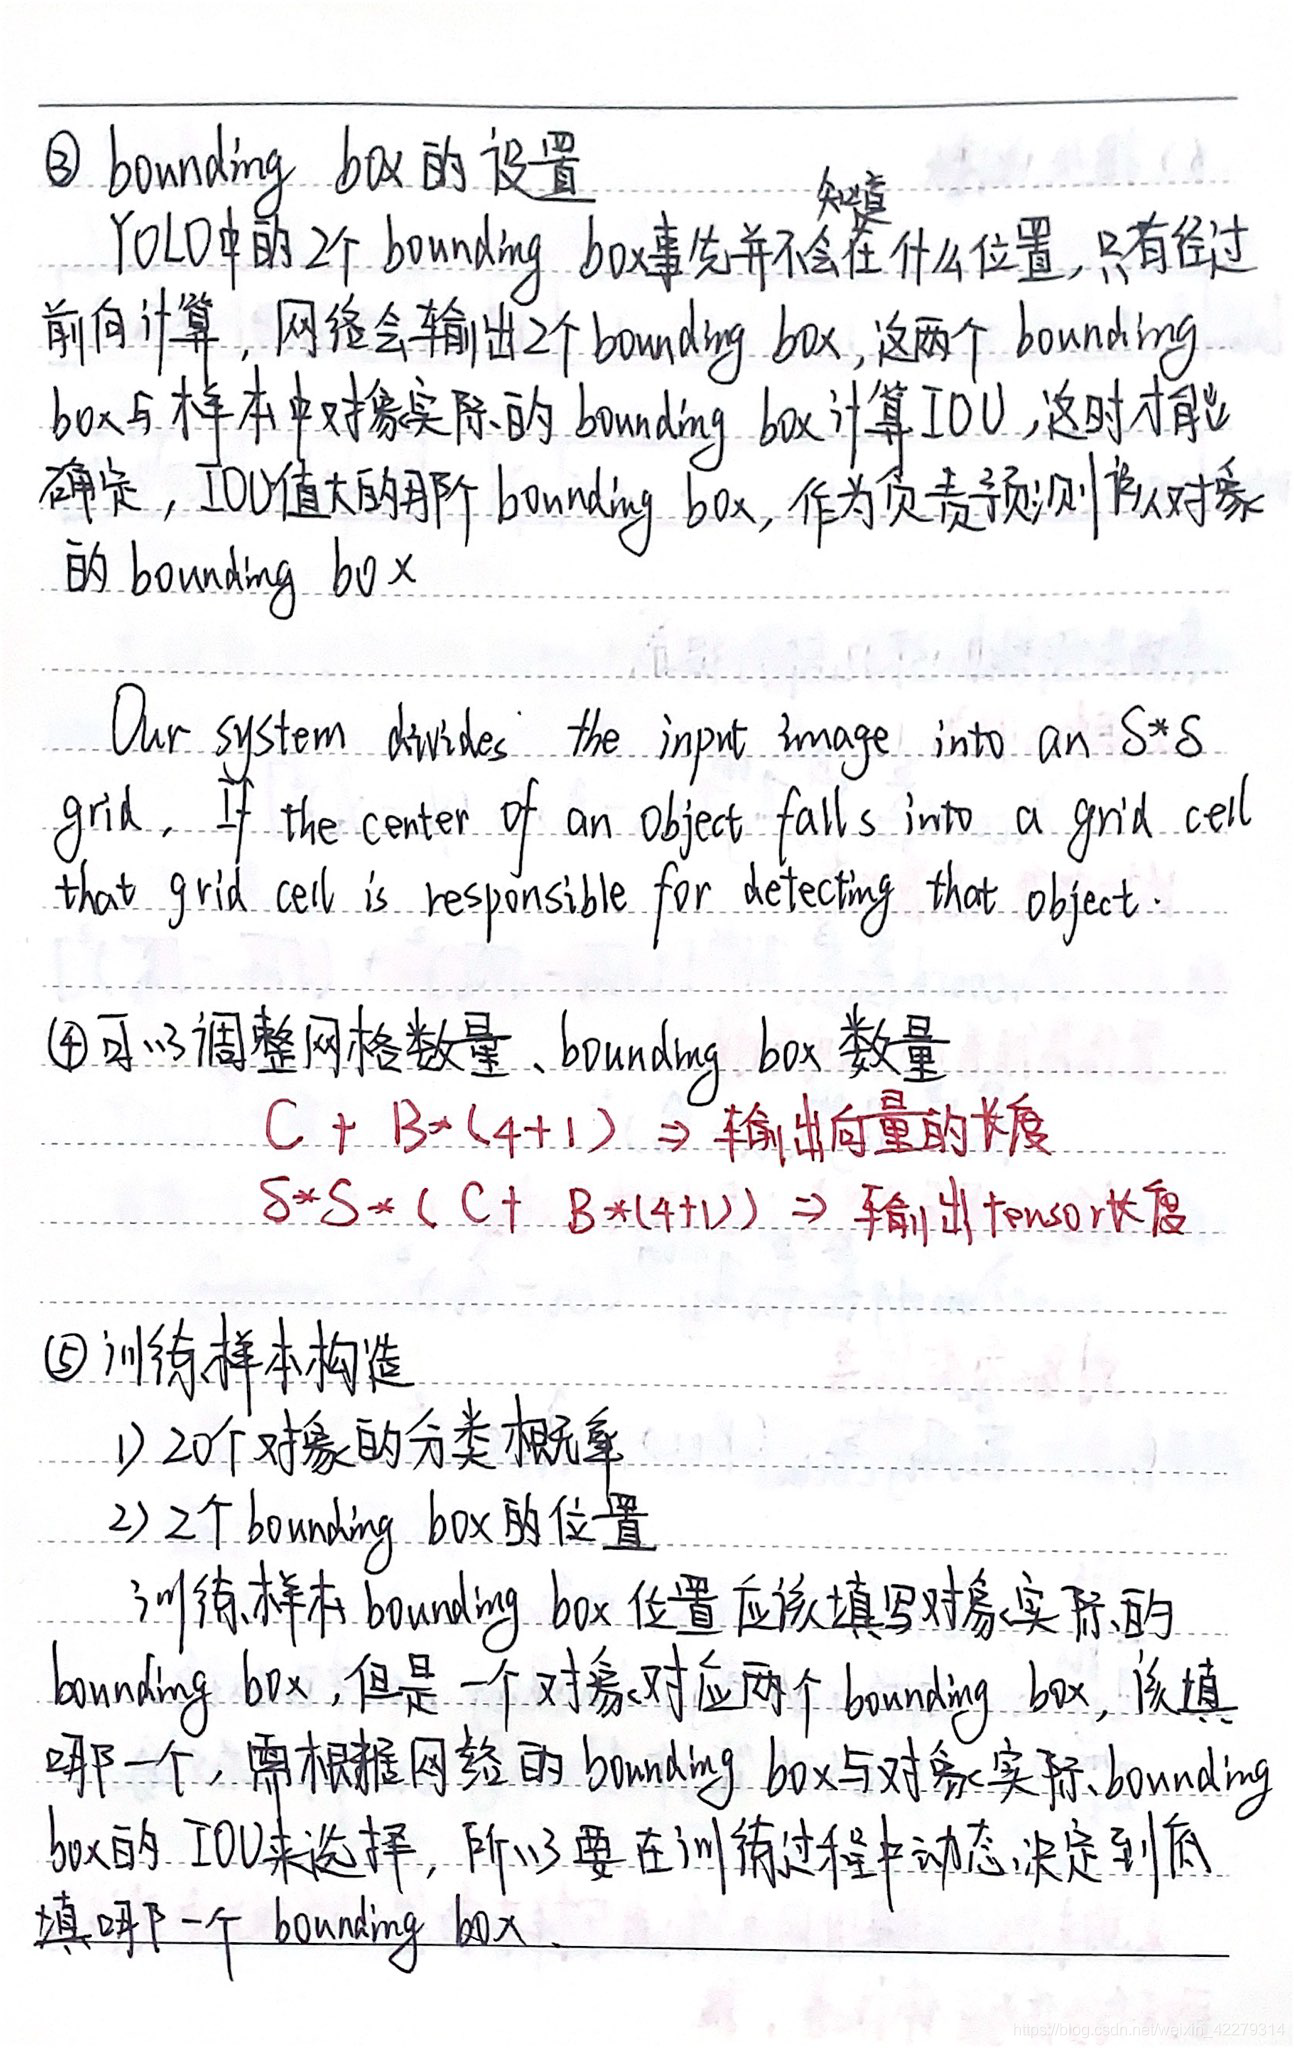 ③ bounding box的设置
YOLO中的2个bounding box事先并不会知道在什么位置,只有经过
前向计算,网络会输出2个bounding box,这两个bounding
box与样本中对象实际的bounding box计算IOU,这时才能
确定,IOU值大的那个bounding box,作为负责预测该对象
的bounding box
Our system divides the input image into an S*S
grid. If the center of an object falls into a grid cell
that grid cell is responsible for detecting that object.
④可以调整网格数量、bounding box数量
C + B*(4+1) ⇒ 输出向量的长度
S*S*(C+ B*(4+1)) ⇒ 输出tensor长度
⑤训练样本构造
1) 20个对象的分类概率
2) 2个bounding box的位置
训练样本bounding box位置应该填写对象实际的
bounding box,但是一个对象对应两个bounding box,该填
哪一个,需根据网络的bounding box与对象实际bounding
box的IOU来选择,所以要在训练过程中动态决定到底
填哪一个bounding box、
https://blog.csdn.net/weixin_42279314